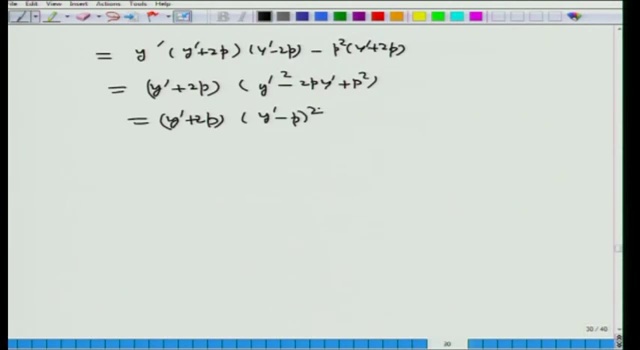 Edit View Insert Actions Tools Help
= y'(y'+2p)(y'-2p) - p²(y'+2p)
= (y'+2p) (y'² - 2py' + p²)
= (y'+2p) (y'-p)²
30 / 40
30